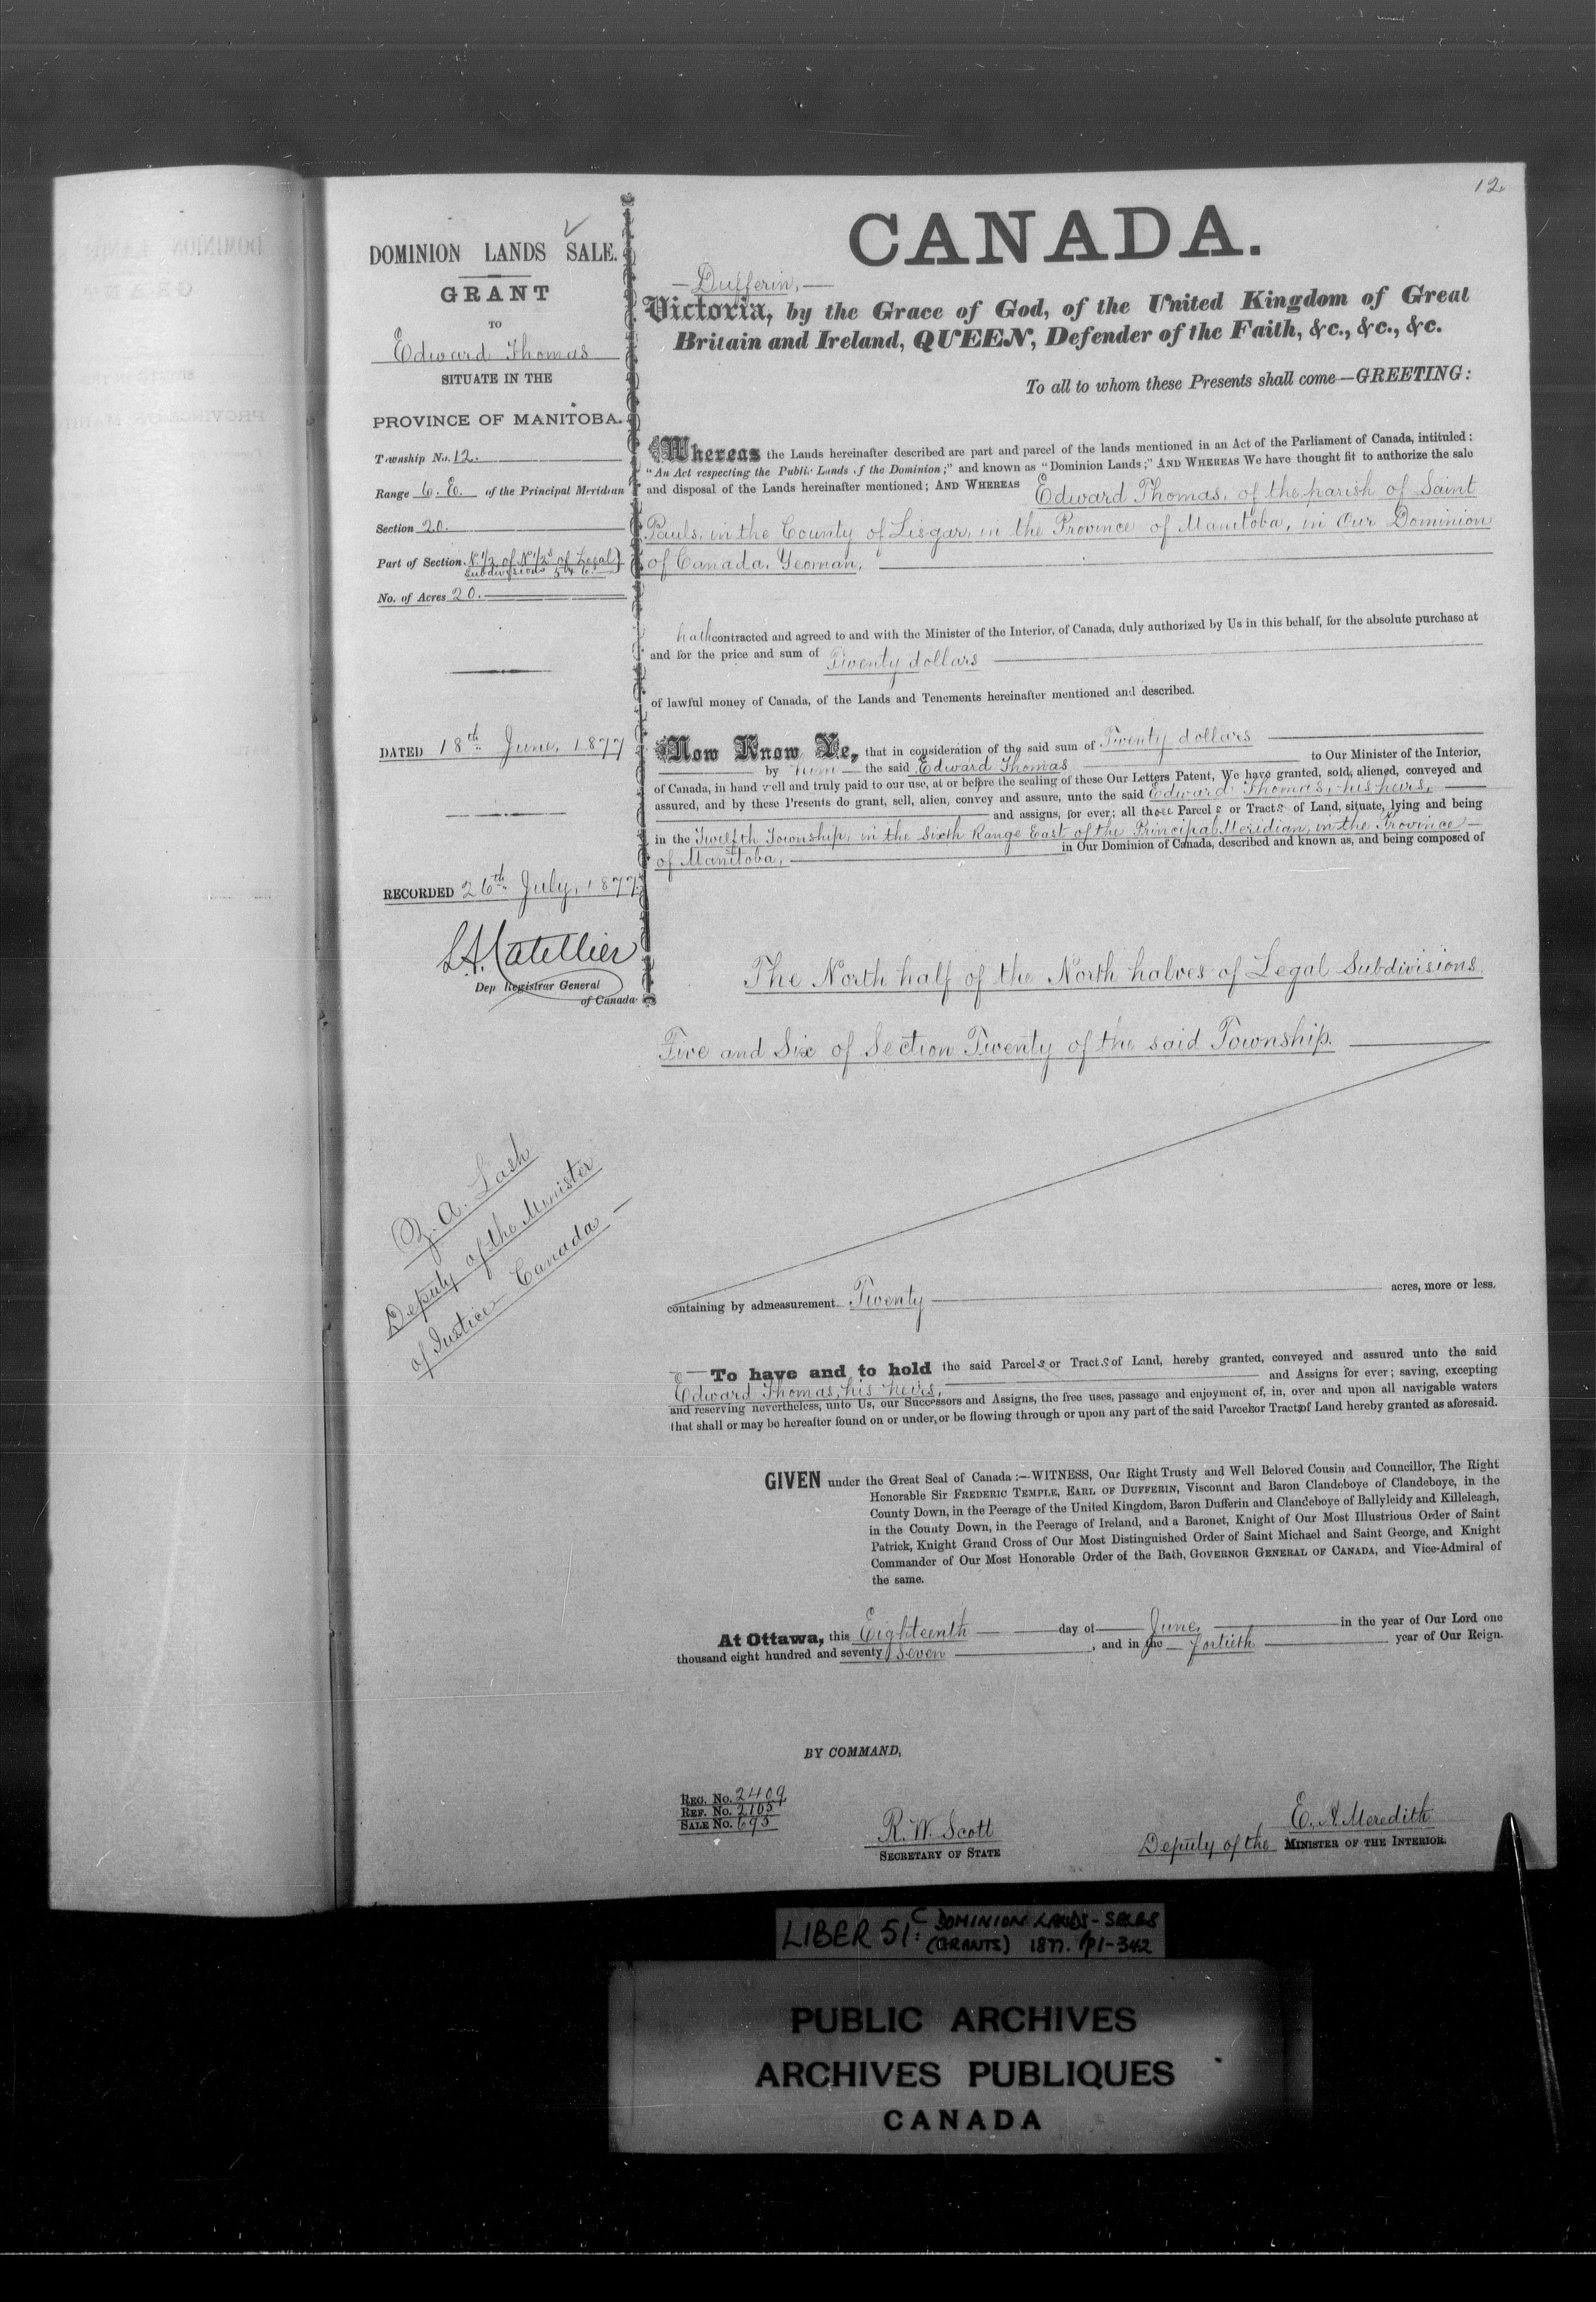 12.
DOMINION LANDS SALE.
GRANT
TO
Edward Thomas
SITUATE IN THE
PROVINCE OF MANITOBA.
Township No. 12.
Range 6. E. of the Principal Meridian
Section 20.
Part of Section. N 1/2 of N 1/2s of Legal
Subdivisions 5 & 6.
No. of Acres 20.
DATED 18th June, 1877
RECORDED 26th July, 1877.
L.A. Catellier
Dep Registrar General
of Canada
Z. A. Lash
Deputy of the Minister
of Justice Canada
CANADA.
Dufferin,
Victoria, by the Grace of God, of the United Kingdom of Great
Britain and Ireland, QUEEN, Defender of the Faith, &c., &c., &c.
To all to whom these Presents shall come—GREETING:
Whereas the Lands hereinafter described are part and parcel of the lands mentioned in an Act of the Parliament of Canada, intituled:
"An Act respecting the Public Lands of the Dominion;" and known as "Dominion Lands;" AND WHEREAS We have thought fit to authorize the sale
and disposal of the Lands hereinafter mentioned; AND WHEREAS Edward Thomas, of the parish of Saint
Pauls, in the County of Lisgar, in the Province of Manitoba, in Our Dominion
of Canada, Yeoman,
hath contracted and agreed to and with the Minister of the Interior, of Canada, duly authorized by Us in this behalf, for the absolute purchase at
and for the price and sum of Twenty dollars
of lawful money of Canada, of the Lands and Tenements hereinafter mentioned and described.
Now Know Ye, that in consideration of the said sum of Twenty dollars
by him the said Edward Thomas to Our Minister of the Interior,
of Canada, in hand well and truly paid to our use, at or before the sealing of these Our Letters Patent, We have granted, sold, aliened, conveyed and
assured, and by these Presents do grant, sell, alien, convey and assure, unto the said Edward Thomas, his heirs,
and assigns, for ever; all those Parcels or Tracts of Land, situate, lying and being
in the Twelfth Township, in the Sixth Range East of the Principal Meridian, in the Province
of Manitoba, in Our Dominion of Canada, described and known as, and being composed of
The North half of the North halves of Legal Subdivisions
Five and Six of Section Twenty of the said Township.
containing by admeasurement Twenty acres, more or less.
To have and to hold the said Parcels or Tracts of Land, hereby granted, conveyed and assured unto the said
Edward Thomas, his heirs, and Assigns for ever; saving, excepting
and reserving nevertheless, unto Us, our Successors and Assigns, the free uses, passage and enjoyment of, in, over and upon all navigable waters
that shall or may be hereafter found on or under, or be flowing through or upon any part of the said Parcels or Tracts of Land hereby granted as aforesaid.
GIVEN under the Great Seal of Canada:—WITNESS, Our Right Trusty and Well Beloved Cousin and Councillor, The Right
Honorable Sir FREDERIC TEMPLE, EARL OF DUFFERIN, Viscount and Baron Clandeboye of Clandeboye, in the
County Down, in the Peerage of the United Kingdom, Baron Dufferin and Clandeboye of Ballyleidy and Killeleagh,
in the County Down, in the Peerage of Ireland, and a Baronet, Knight of Our Most Illustrious Order of Saint
Patrick, Knight Grand Cross of Our Most Distinguished Order of Saint Michael and Saint George, and Knight
Commander of Our Most Honorable Order of the Bath, GOVERNOR GENERAL OF CANADA, and Vice-Admiral of
the same.
At Ottawa, this Eighteenth day of June, in the year of Our Lord one
thousand eight hundred and seventy seven, and in the fortieth year of Our Reign.
BY COMMAND,
REG. No. 2409
REF. No. 2105
SALE No. 695
R. W. Scott
SECRETARY OF STATE
E. A. Meredith
Deputy of the MINISTER OF THE INTERIOR.
LIBER 51C: DOMINION LANDS-SALES
(GRANTS) 1877. pp1-342
PUBLIC ARCHIVES
ARCHIVES PUBLIQUES
CANADA